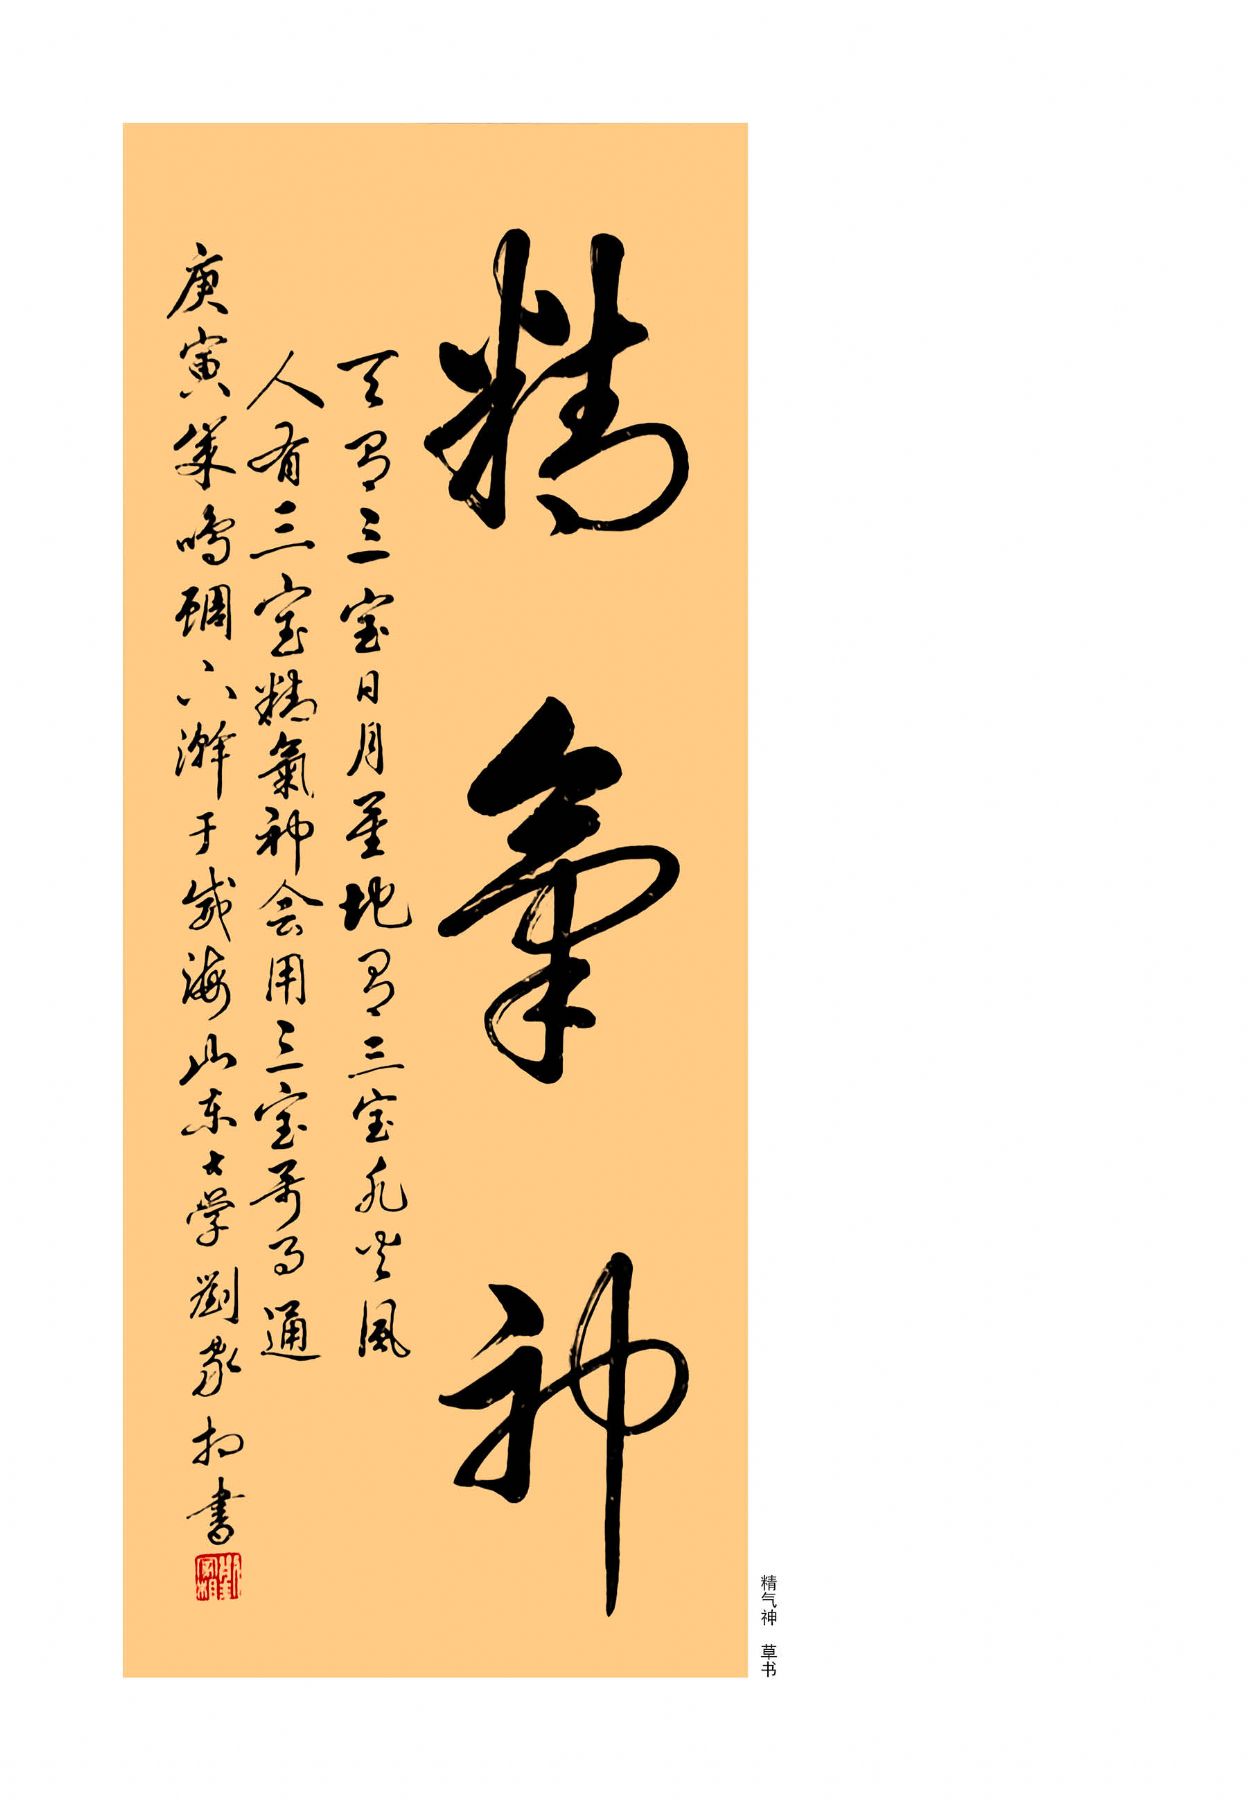 精氣神
天有三宝日月星地有三宝水火风
人有三宝精氣神会用三宝万事通
庚寅年鸣蜩六澣于威海山东大学劉家朸書
精气神 草书